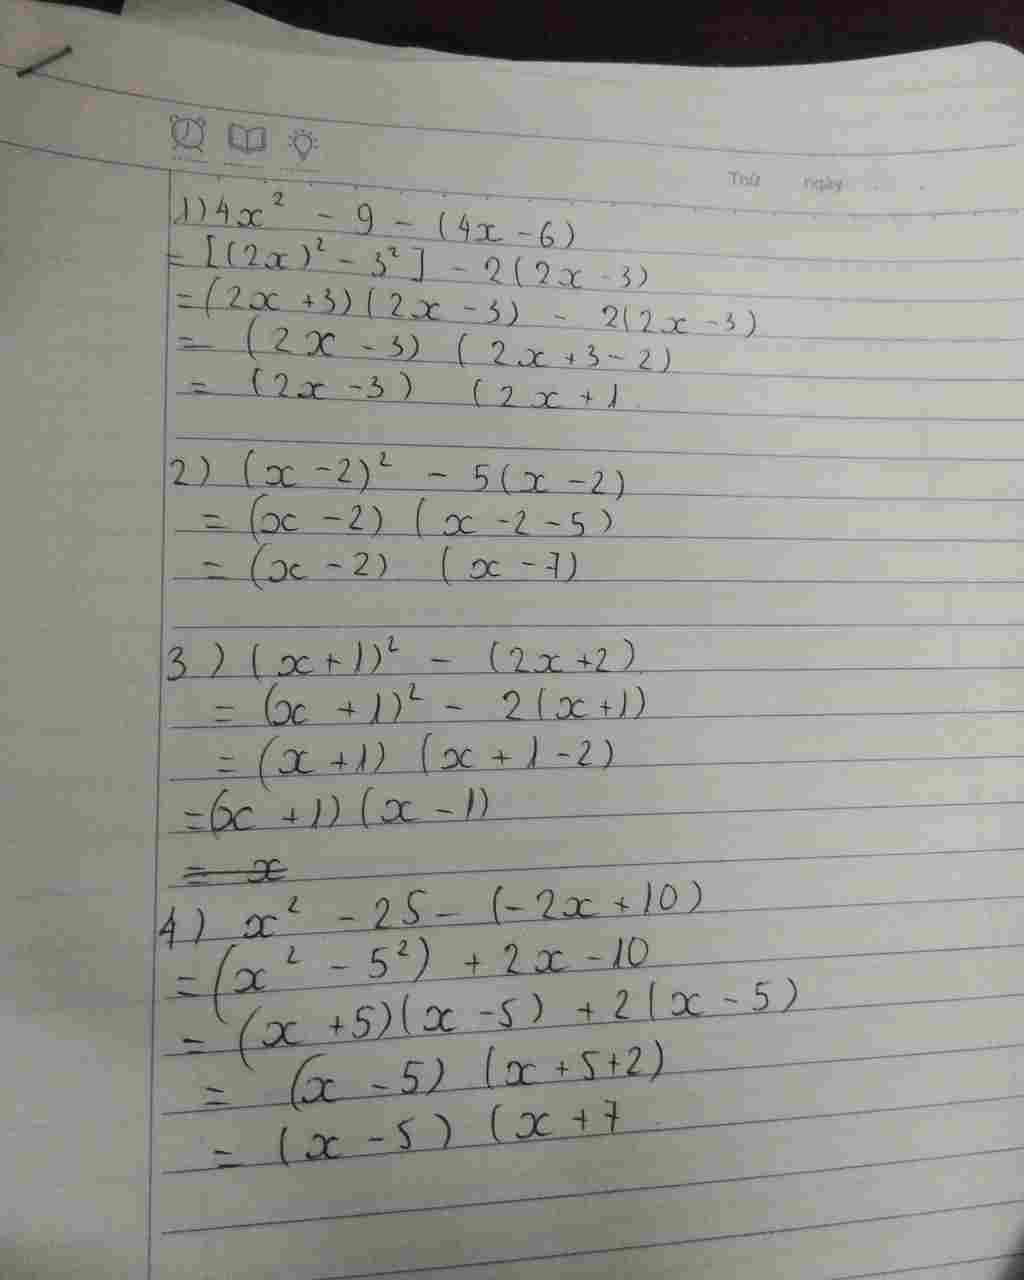 Thứ ngày
1) 4x² - 9 - (4x - 6)
= [(2x)² - 3²] - 2(2x - 3)
= (2x + 3)(2x - 3) - 2(2x - 3)
= (2x - 3) (2x + 3 - 2)
= (2x - 3) (2x + 1
2) (x - 2)² - 5(x - 2)
= (x - 2) (x - 2 - 5)
= (x - 2) (x - 7)
3) (x + 1)² - (2x + 2)
= (x + 1)² - 2(x + 1)
= (x + 1) (x + 1 - 2)
= (x + 1)(x - 1)
= x
4) x² - 25 - (-2x + 10)
= (x² - 5²) + 2x - 10
= (x + 5)(x - 5) + 2(x - 5)
= (x - 5) (x + 5 + 2)
= (x - 5) (x + 7